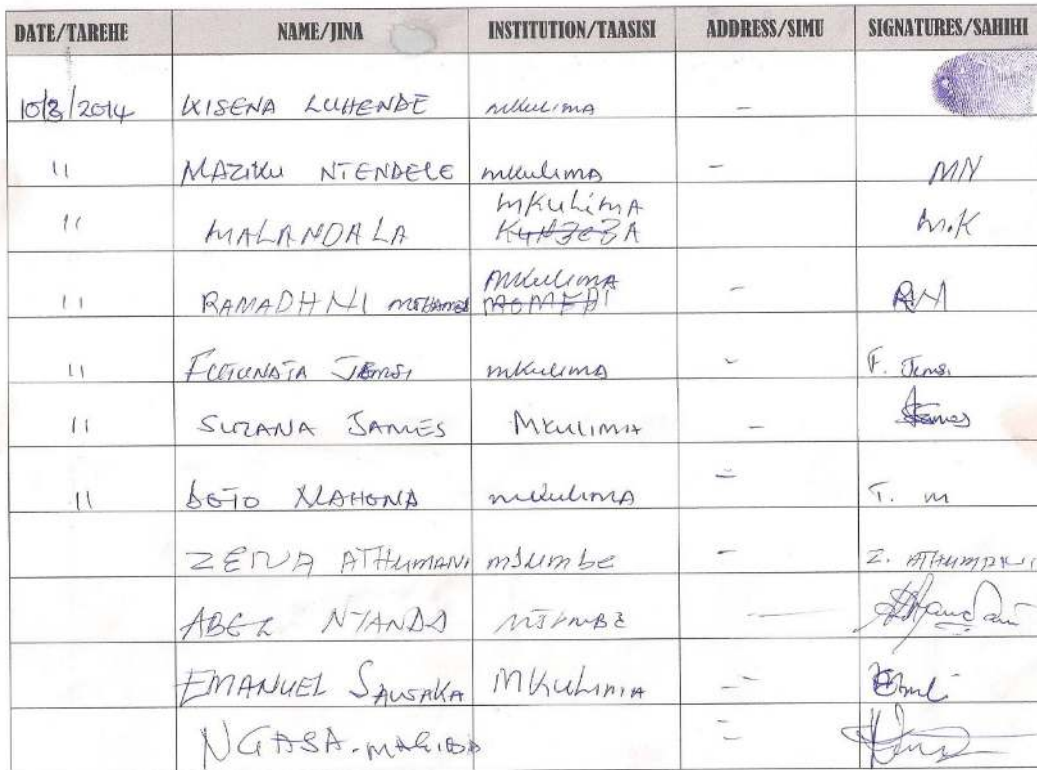 DATE/TAREHE NAME/JINA INSTITUTION/TAASISI ADDRESS/SIMU SIGNATURES/SAHIHI
10/3/2014 KISENA LUHENDE mkulima –
11 MAZIKU NTENDELE mkulima – MN
11 MALANDALA mkulima M.K
11 RAMADHNI mkulima – RM
11 mkulima F. Jems
11 SUZANA JAMES Mkulima – James
11 DOTO MAHONA mkulima T. m
ZENA ATHUMANI mjumbe – Z. ATHUMANI
ABEL NYANDA mjumbe –
EMANUEL Mkulima –
NGASA.